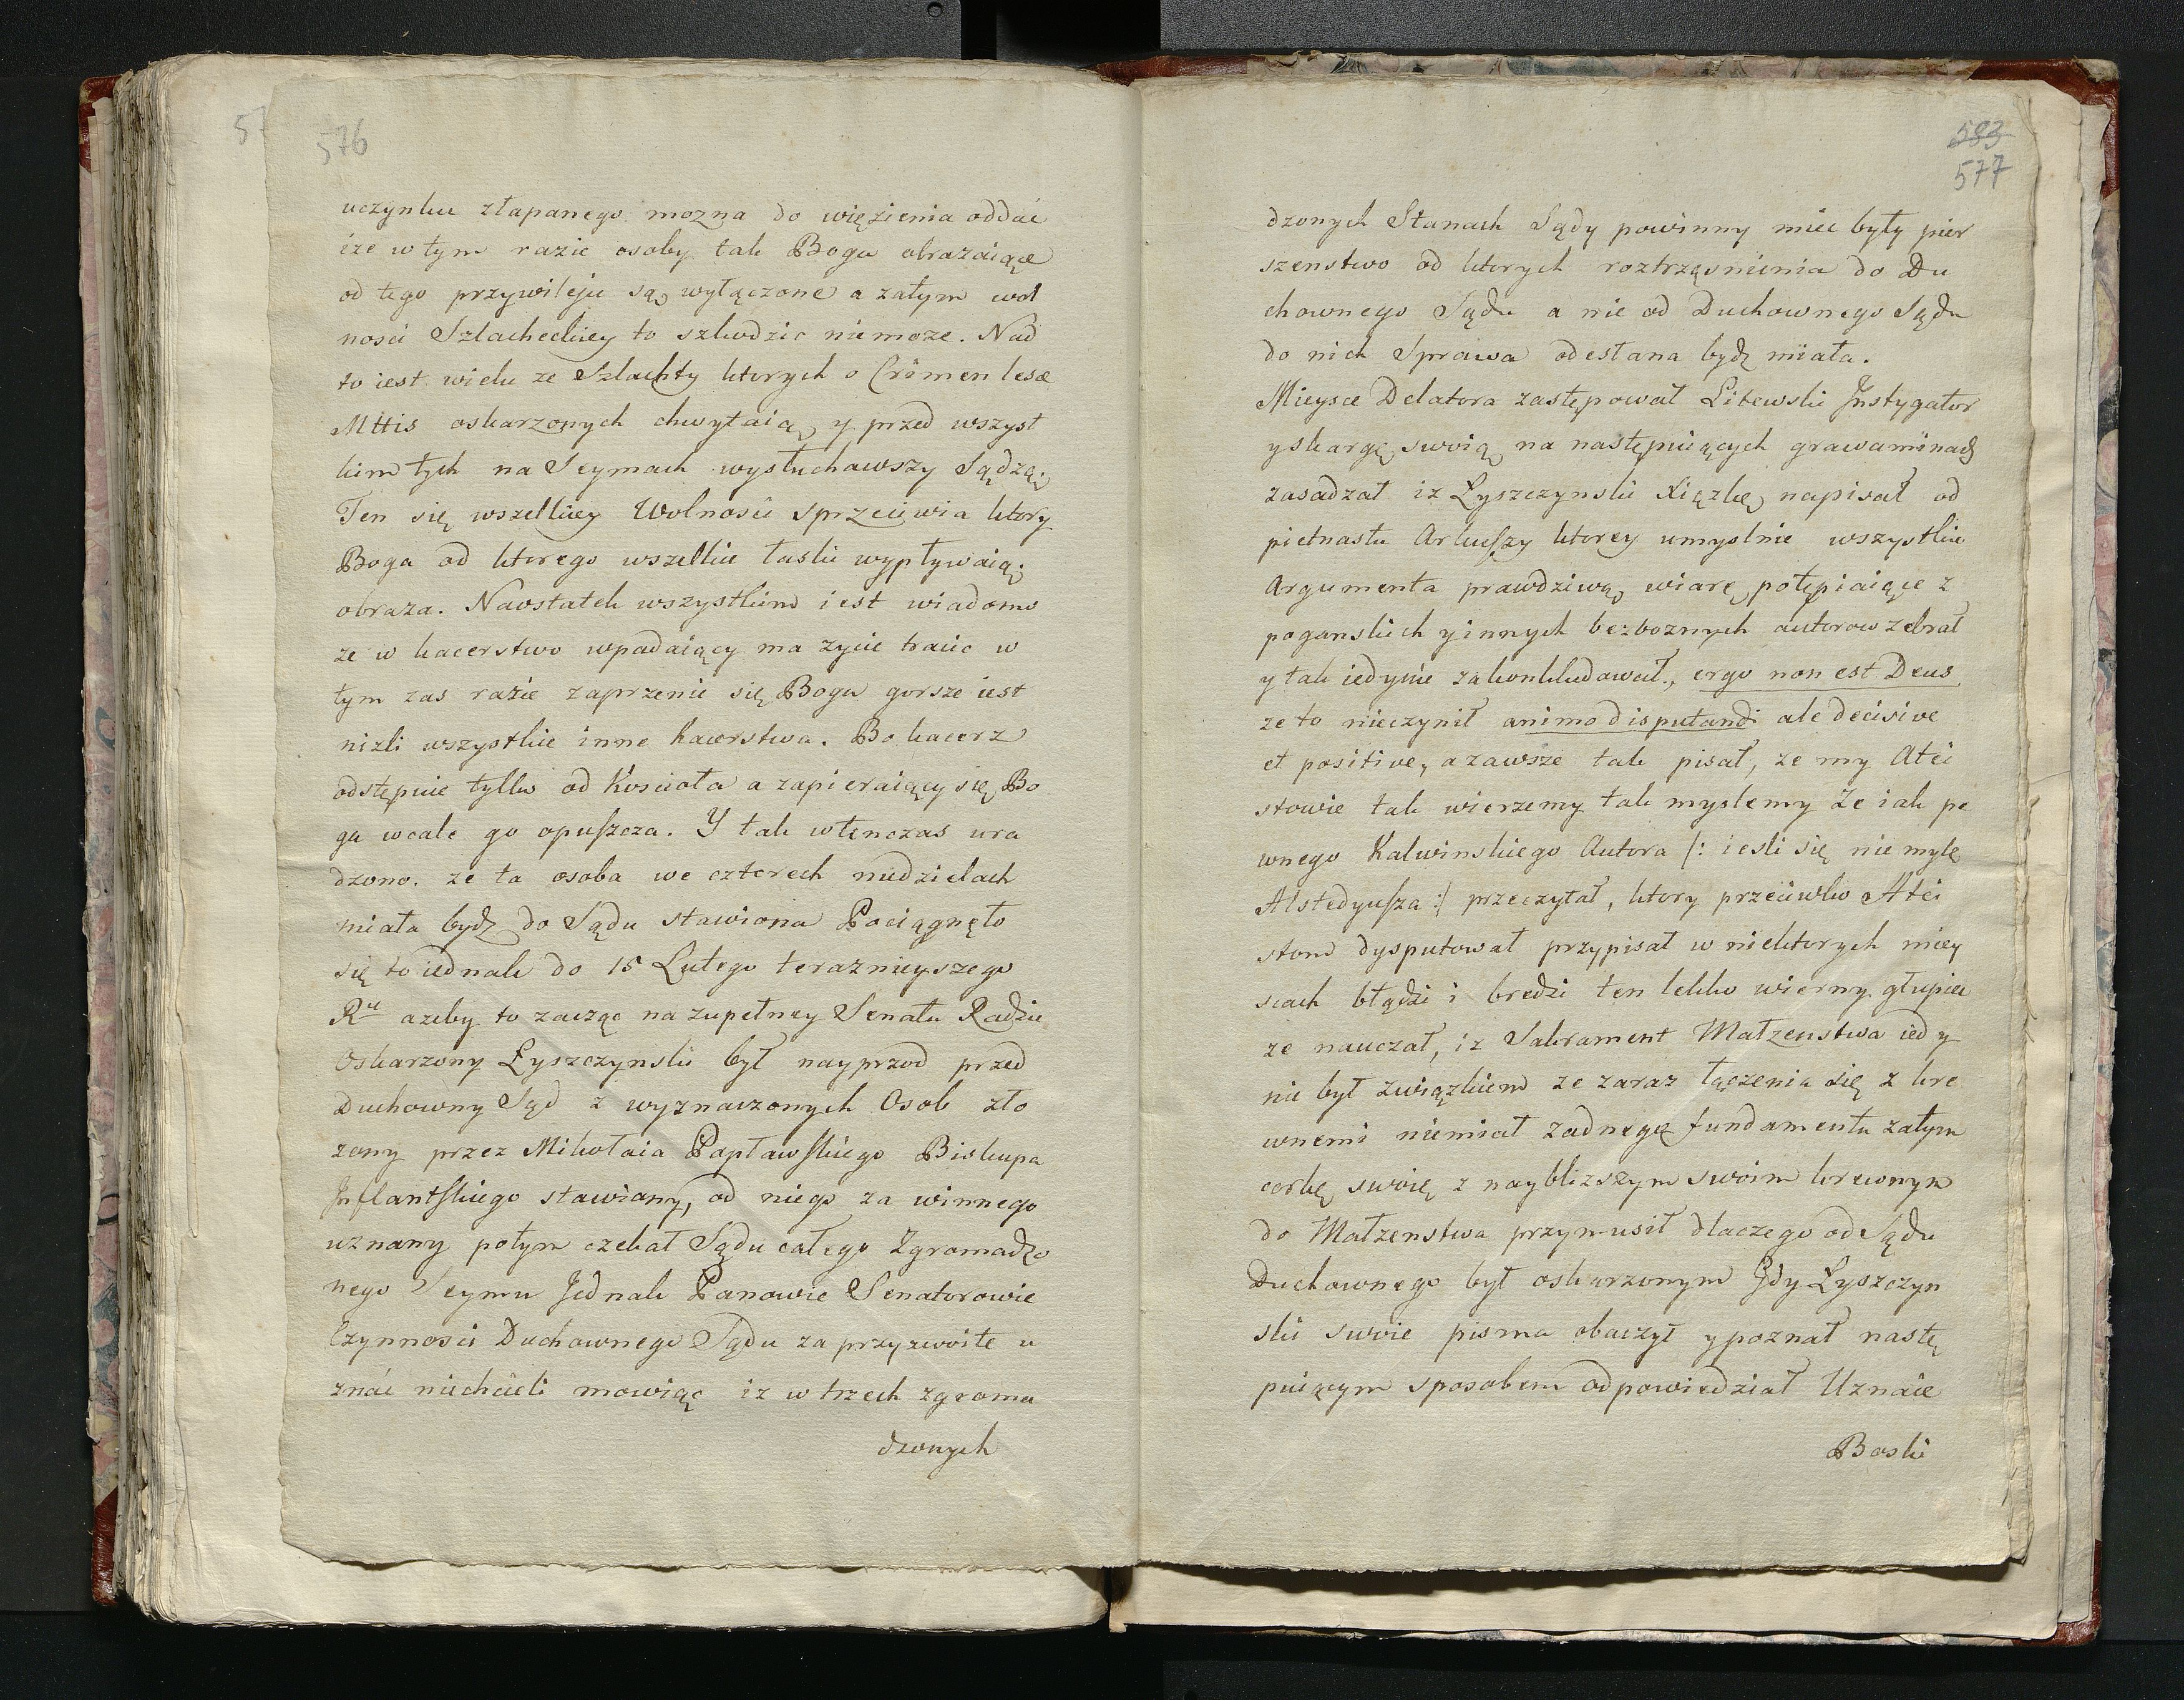 57
576
uczynku złapanego mozna do więzienia oddać
iże w tym razie osoby tak Boga obrazaiące
od tego przywileju są wyłączone a zatym wol
nosci Szlacheckiey to szkodzic niemoze. Nad
to iest wielu ze Szlachty ktorych o Crimen lesæ
Mttis oskarzonych chwytaią y przed wszyst
kim tych na Seymach wysłuchawszy Sądzą.
Ten się wszelkiey Wolnosci sprzeciwia ktory
Boga od ktorego wszelkie łaski wypływaią
obraza. Naostatek wszystkim iest wiadomo
ze w kacerstwo wpadaiący ma zycie tracic w
tym zas razie zaprzenie się Boga gorsze iest
nizli wszystkie inne kacerstwa. Bo kacerz
odstępuie tylko od Koscioła a zapieraiący się Bo
ga wcale go opuszcza. Y tak wtenczas ura
dzono. ze ta osoba we czterech niedzielach
miała bydz do Sądu stawiona Pociągnęło
się to iednak do 15 Lutego teraznieyszego
Ru azeby to zacząc na zupełney Senatu Radzie
Oskarzony Łyszczynski był nayprzod przed
Duchowny Sąd z wyznaczonych Osob zło
zony przez Mikołaia Popławskiego Biskupa
Inflantskiego stawiany, od niego za winnego
uznany potym czekał Sądu całego Zgromadzo
nego Seymu Jednak Panowie Senatorowie
Czynnosci Duchownego Sądu za przyzwoite u
znác niechcieli mowiąc iz w trzech zgroma
dzonych
583
577
dzonych Stanach Sądy powinny miec były pier
szenstwo od ktorych roztrząsnienia do Du
chownego Sądu a nie od Duchownego Sądu
do nich Sprawa odesłana bydz miała.
Mieysce Delatora zastępował Litewski Instygator
y skargę swoią na następuiących grawaminach
zasadzał iz Łyszczynski Xiązkę napisał od
pietnastu Arkuszy ktorey umyslnie wszystkie
Argumenta prawdziwą wiarę potępiaiące z
poganskich y innych bezboznych autorow zebrał
y tak iedynie zakonkludował, ergo non est Deus
ze to nieczynił animo disputandi ale decisive
et positive, a zawsze tak pisał, ze my Atei
stowie tak wierzemy tak myslemy Ze iak pe
wnego Kalwinskiego Autora /: iesli się nie mylę
Alstedyusza :/ przeczytał, ktory przeciwko Atei
stom dysputował przypisał w niektorych miey
scach błądzi i bredzi ten lekko wierny głupiec
ze nauczał, iz Sakrament Małzenstwa iedy
nie był związkiem ze zaraz łączenia się z kre
wnemi niemiał zadnego fundamentu zatym
corkę swoię z nayblizszym swoim krewnym
do Małzenstwa przymusił dlaczego od Sądu
Duchownego był oskarzonym Gdy Łyszczyn
ski swoie pisma obaczył y poznał nastę
puiącym sposobem odpowiedział Uznaie
Boski